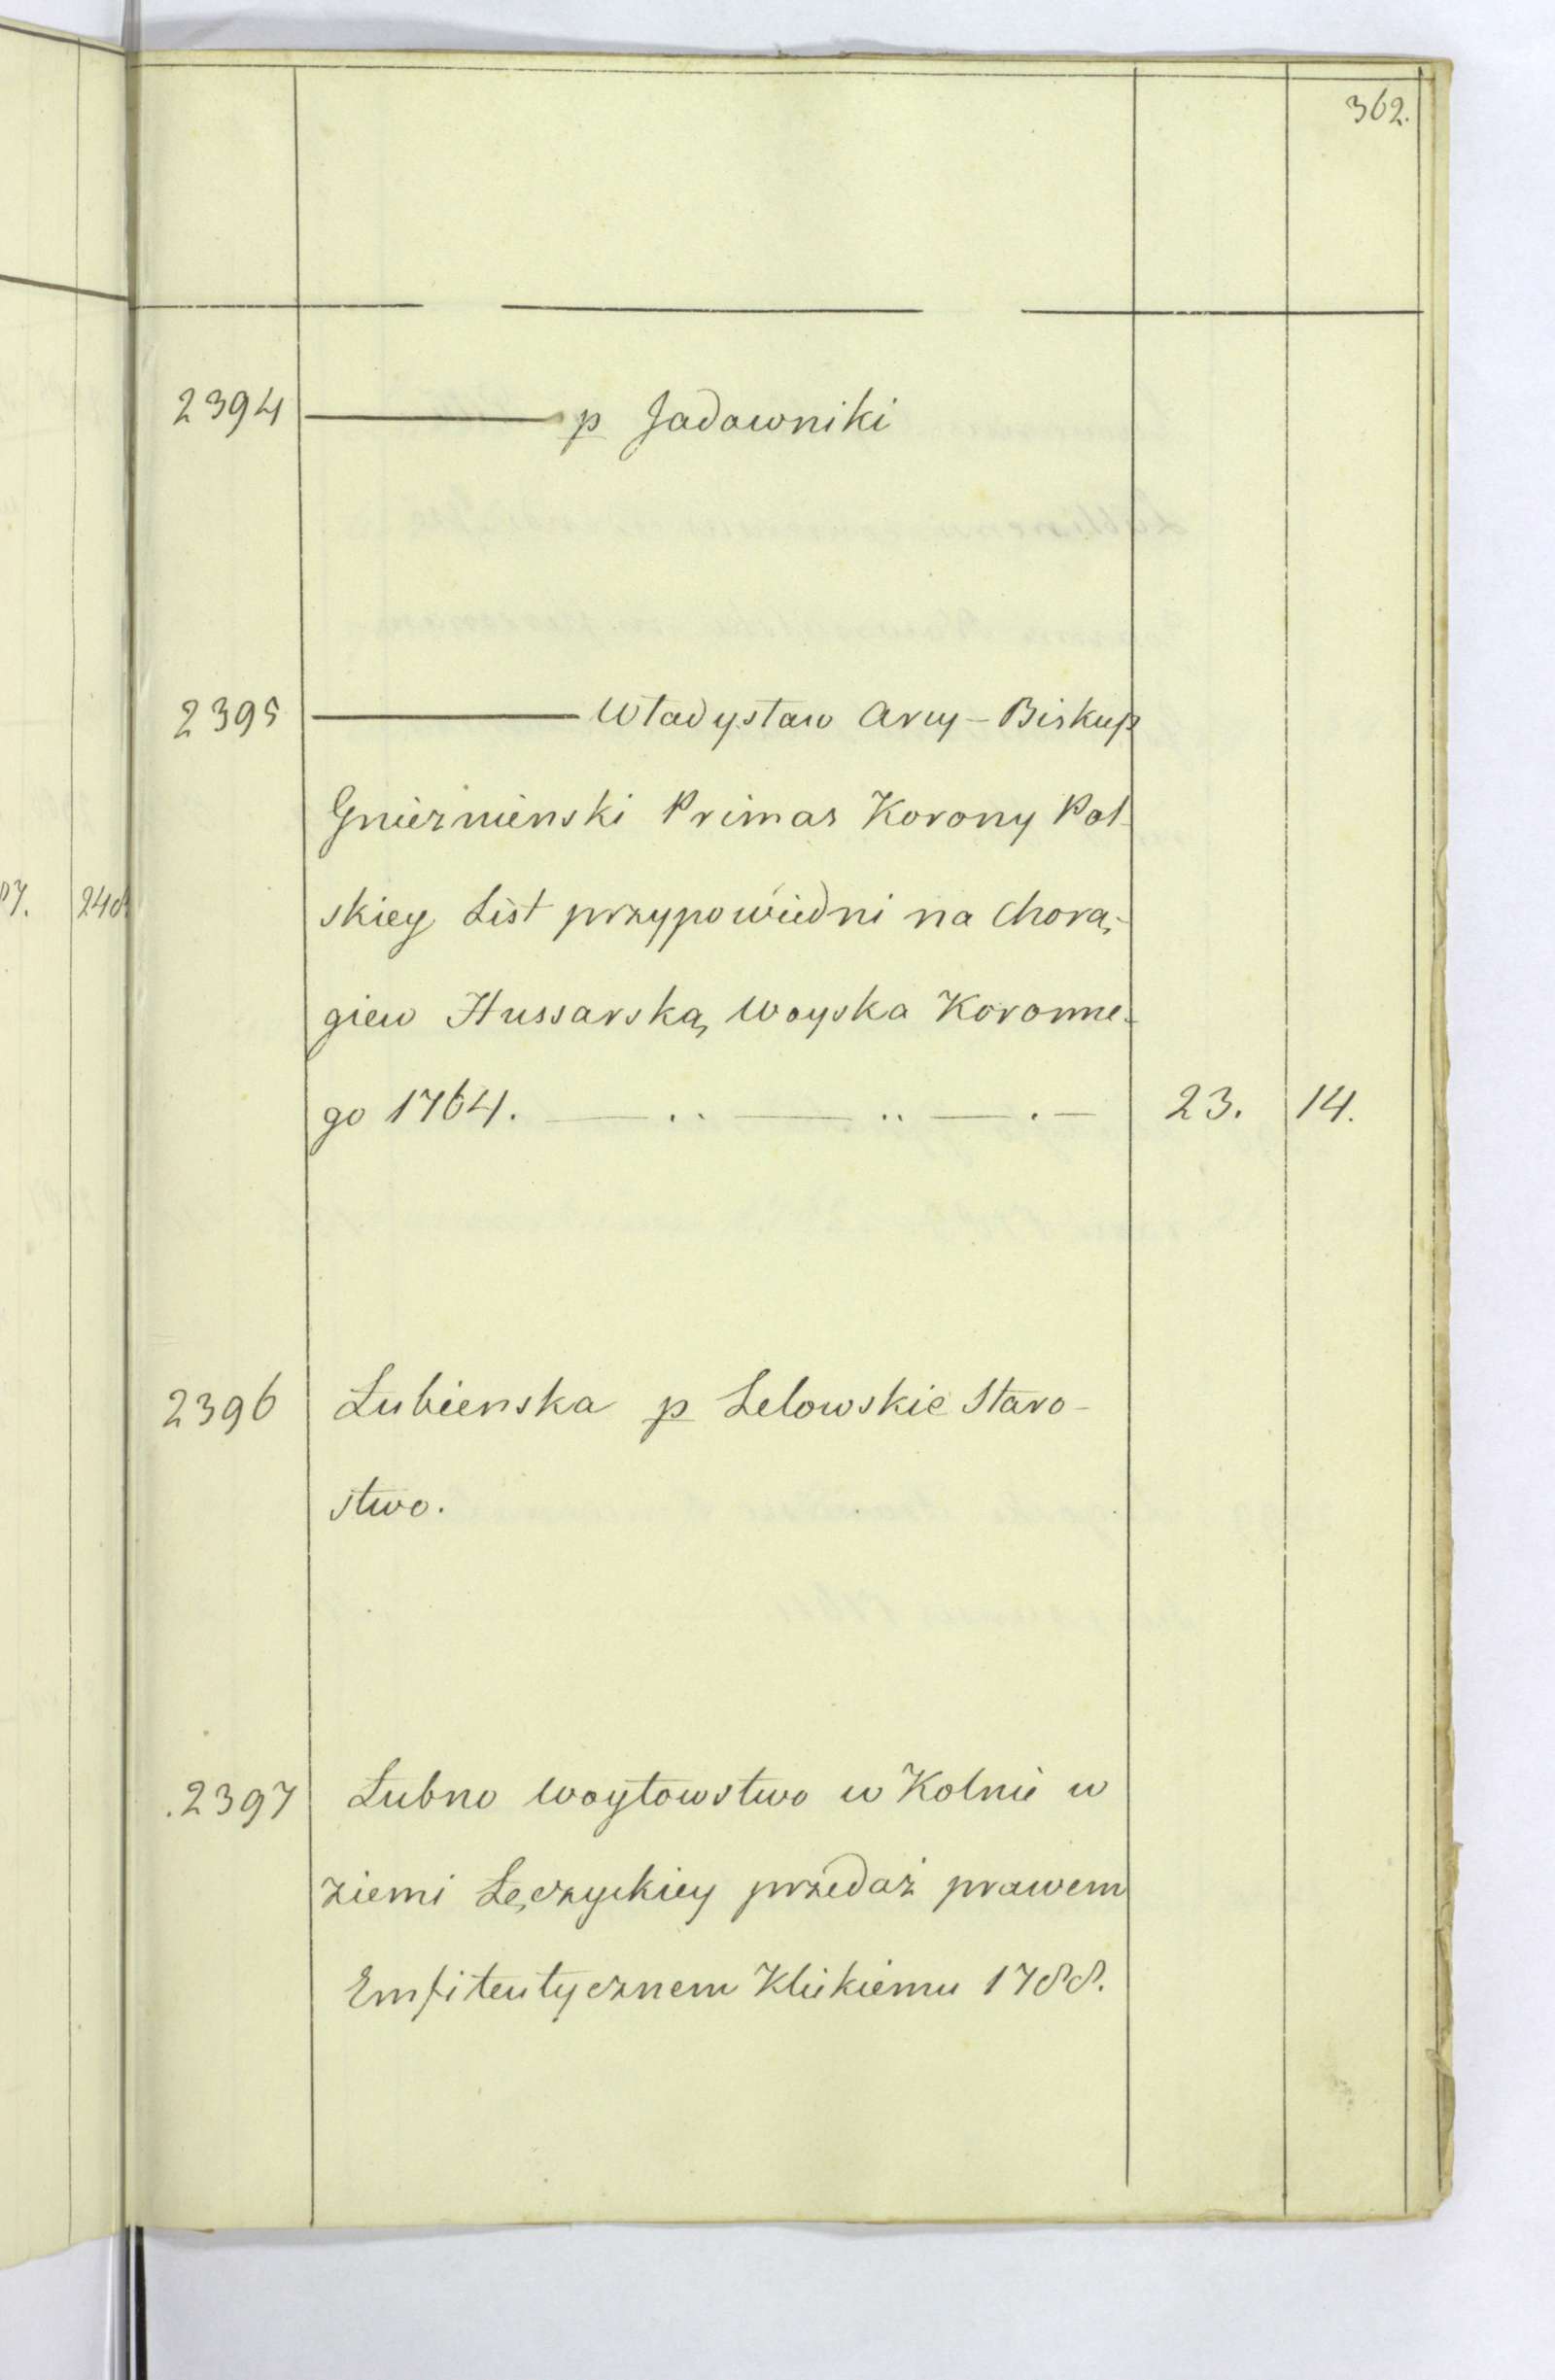 362.
2394 ——— p Jadowniki
2395 ——— Władysław Arcy-Biskup
Gnieznienski Primas Korony Pol-
skiey List przypowiedni na chorą-
giew Hussarską woyska Koronne-
go 1764. — .. — .. — . — 23. 14.
2396 Łubienska p Lelowskie Staro-
stwo.
07. 248
.2397 Łubno woytowstwo w Kolnie w
ziemi Łęczyckiey przedaż prawem
Emfiteutycznem Klickiemu 1788.